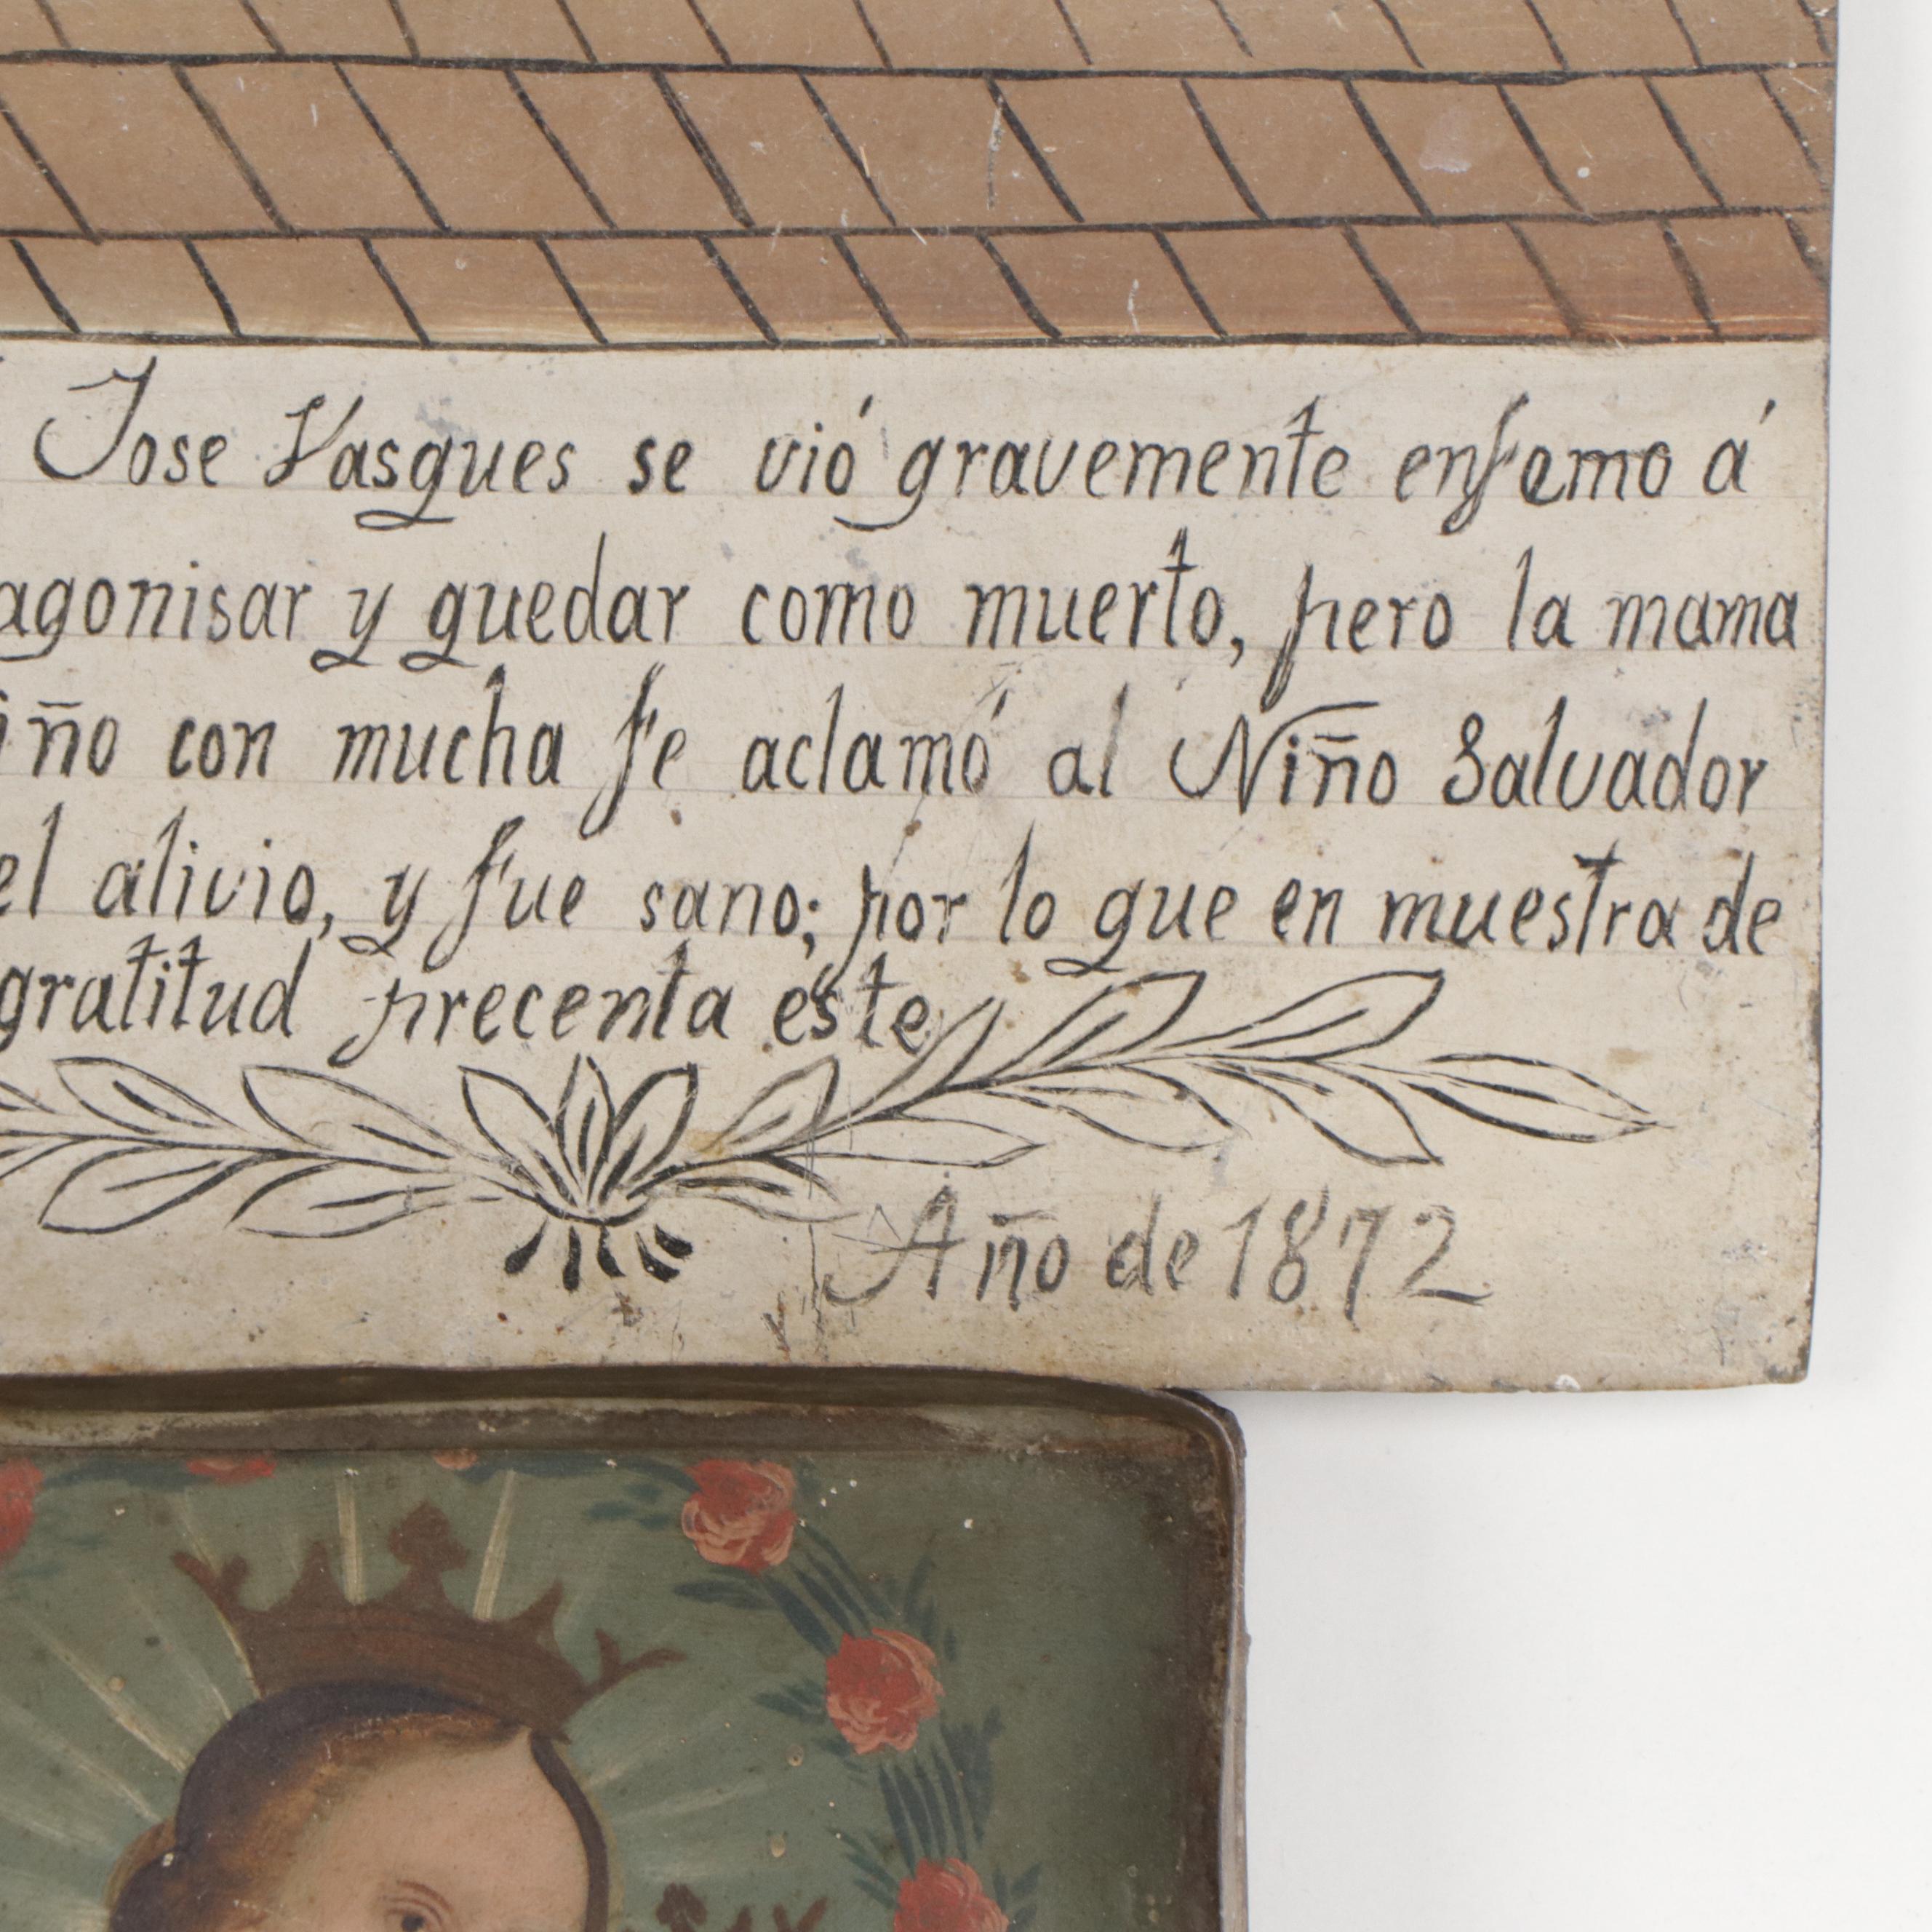 Jose Vasques se vió gravemente enfemo á
agonisar y quedar como muerto, pero la mama
con mucha fe aclamó al Niño Salvador
el alivio, y fue sano; por lo que en muestra de
gratitud precenta este
Año de 1872